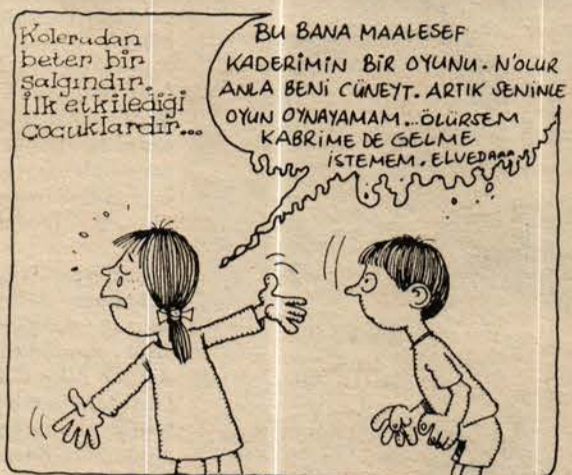 Koleradan
beter bir
salgındır.
İlk etkilediği
çocuklardır...
BU BANA MAALESEF
KADERİMİN BİR OYUNU. N'OLUR
ANLA BENİ CÜNEYT. ARTIK SENİNLE
OYUN OYNAYAMAM...ÖLÜRSEM
KABRİME DE GELME
İSTEMEM. ELVEDAAA